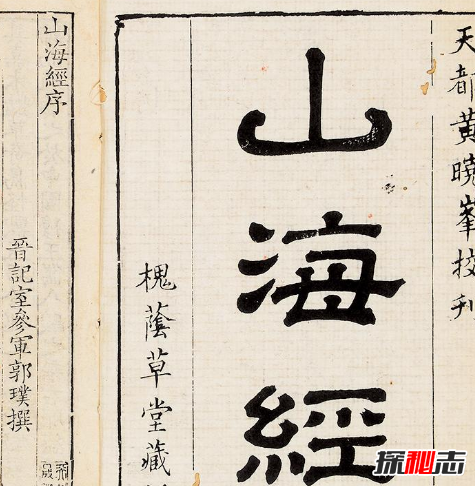 天都黄曉峯校刋
山海經
槐蔭草堂藏
山海經序
晉記室參軍郭璞撰
探秘志